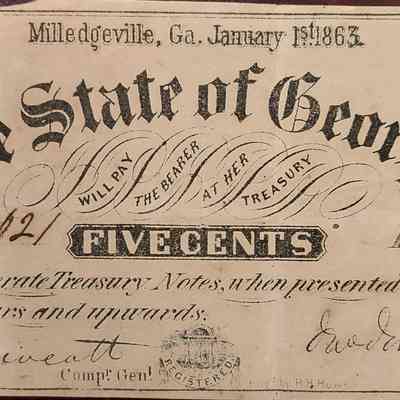 Milledgeville, Ga. January 1st 1863.
e State of Geor
WILL PAY THE BEARER AT HER TREASURY
021
FIVE CENTS
erate Treasury Notes, when presented
rs and upwards.
Compl. Genl.
REGISTERED.